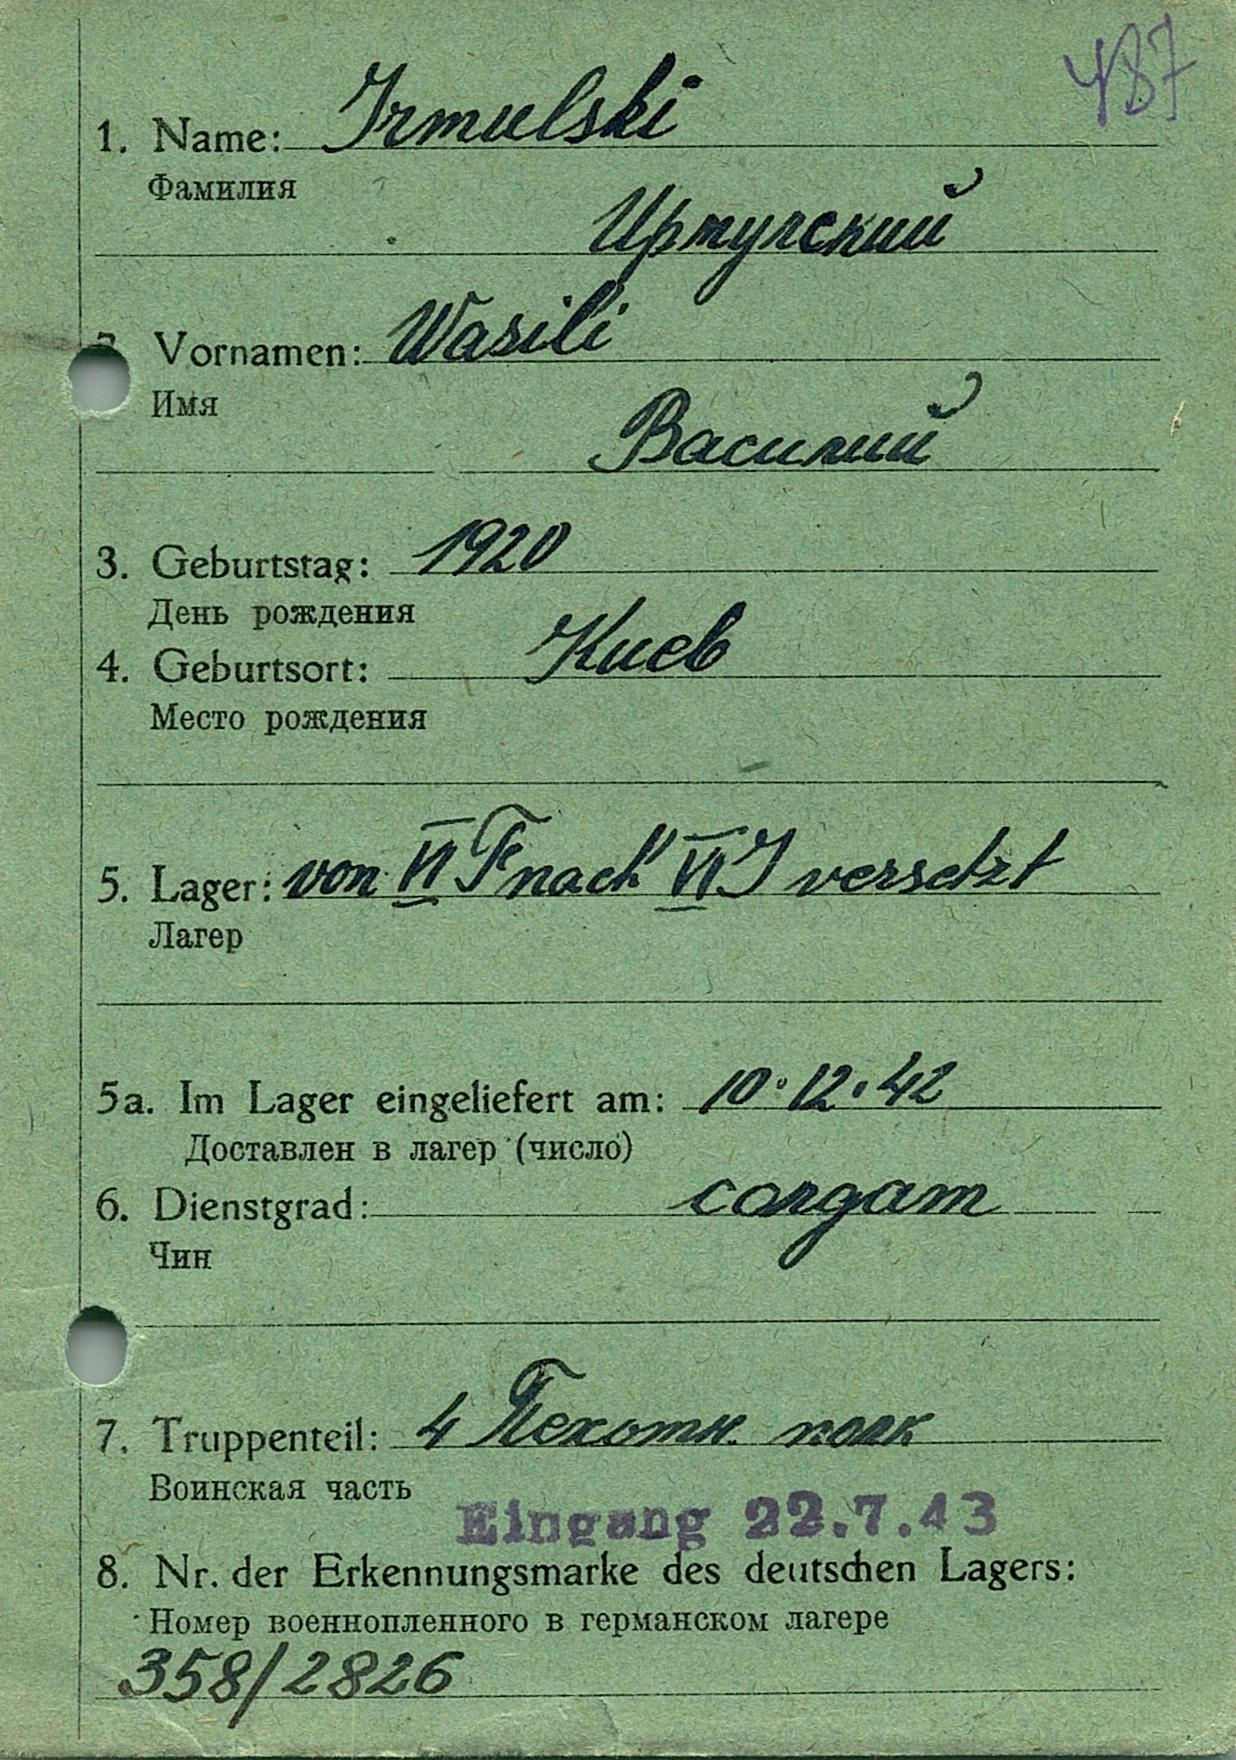 487
1. Name: Irmulski
Фамилия
Ирмулский
Vornamen: Wasili
Имя
Василий
3. Geburtstag: 1920
День рождения
4. Geburtsort: Киев
Место рождения
5. Lager: von VI F nach VI J versetzt
Лагер
5a. Im Lager eingeliefert am: 10.12.42
Доставлен в лагер (число)
6. Dienstgrad: солдат
Чин
7. Truppenteil: 4 Пехотн. полк
Воинская часть
Eingang 22.7.43
8. Nr. der Erkennungsmarke des deutschen Lagers:
Номер военнопленного в германском лагере
358/2826